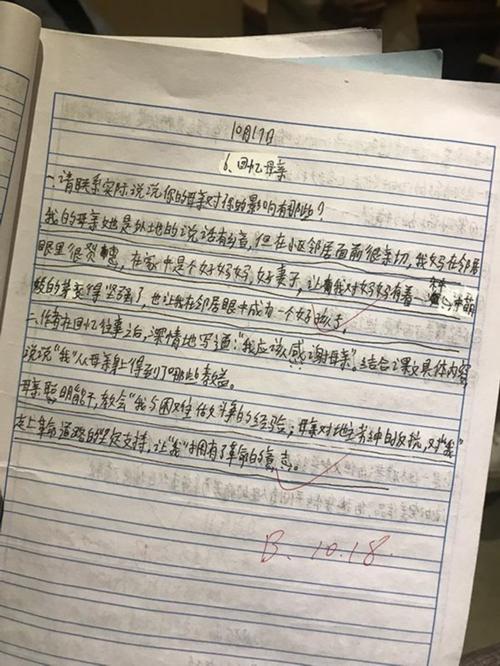 10月17日
6、回忆母亲
一、请联系实际说说你的母亲对你的影响有那些?
我的母亲她是外地的说话有乡音,但在小区邻居面前很亲切,我妈在邻居
眼里很贤惠,在家中是个好妈妈,好妻子,让我对妈妈有着一种
的变得坚强了,也让我在邻居眼中成为一个好孩子。
二、作者在回忆往事之后,深情地写道:“我应该感谢母亲”。结合课文具体内容
说说“我”从母亲身上得到了哪些教益。
母亲聪明能干,教会“我与困难作斗争的经验;母亲对地主劳绅的反抗,对“我”
走上革命道路的坚定支持,让“我”拥有了革命的意志。
B. 10.18